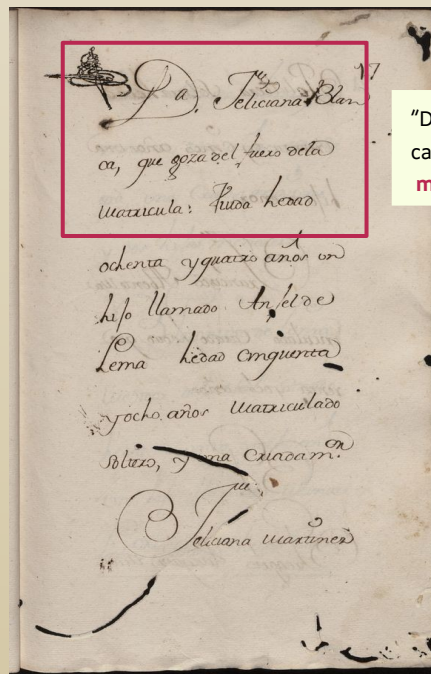 17
Dª. Feliciana Blan
ca, que goza del fuero dela
matricula: Viuda hedad
ochenta y quatro años un
hijo llamado Anjel de
Lema hedad cinquenta
y ocho años matriculado
soltero, y una Criada m.
Feliciana Martinez
"D
ca
m